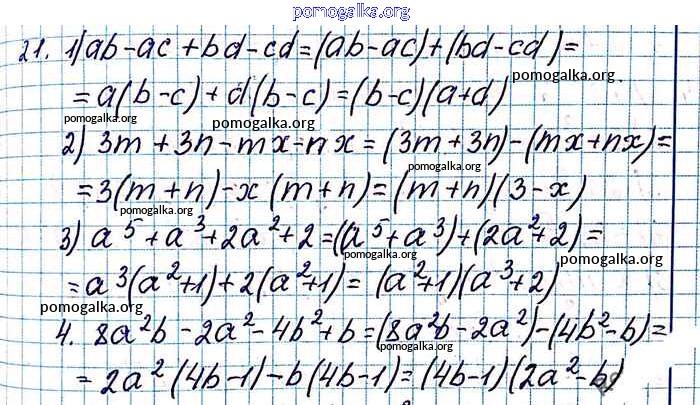 pomogalka.org
21. 1) ab-ac+bd-cd=(ab-ac)+(bd-cd)=
pomogalka.org
=a(b-c)+d(b-c)=(b-c)(a+d)
pomogalka.org
pomogalka.org
2) 3m+3n-mx-nx=(3m+3n)-(mx+nx)=
pomogalka.org
=3(m+n)-x(m+n)=(m+n)(3-x)
pomogalka.org
pomogalka.org
3) a⁵+a³+2a²+2=((a⁵+a³)+(2a²+2)=
pomogalka.org
pomogalka.org
=a³(a²+1)+2(a²+1)=(a²+1)(a³+2)
pomogalka.org
pomogalka.org
4. 8a²b-2a²-4b²+b=(8a²b-2a²)-(4b²-b)=
pomogalka.org
=2a²(4b-1)-b(4b-1)=(4b-1)(2a²-b)